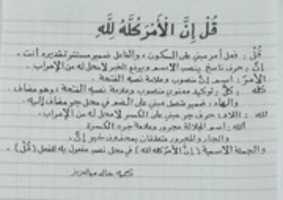 قُلْ إِنَّ الْأَمْرَ كُلَّهُ لِلَّهِ
قُلْ : فعل أمر مبني على السكون ، والفاعل ضمير مستتر تقديره أنت .
إنَّ : حرف ناسخ ينصب الاسم ويرفع الخبر لا محل له من الإعراب .
الأمرَ : اسم إنَّ منصوب وعلامة نصبه الفتحة .
كلَّه : كلَّ : توكيد معنوي منصوب وعلامة نصبه الفتحة ، وهو مضاف
والهاء : ضمير متصل مبني على الضم في محل جر مضاف إليه .
لله : اللام : حرف جر مبني على الكسر لا محل له من الإعراب .
الله : اسم الجلالة مجرور وعلامة جره الكسرة .
والجار والمجرور متعلقان بمحذوف خبر إنَّ .
والجملة الاسمية (إنَّ الأمر كله لله) في محل نصب مفعول به للفعل (قُلْ) .
كتبه خالد عبدالعزيز